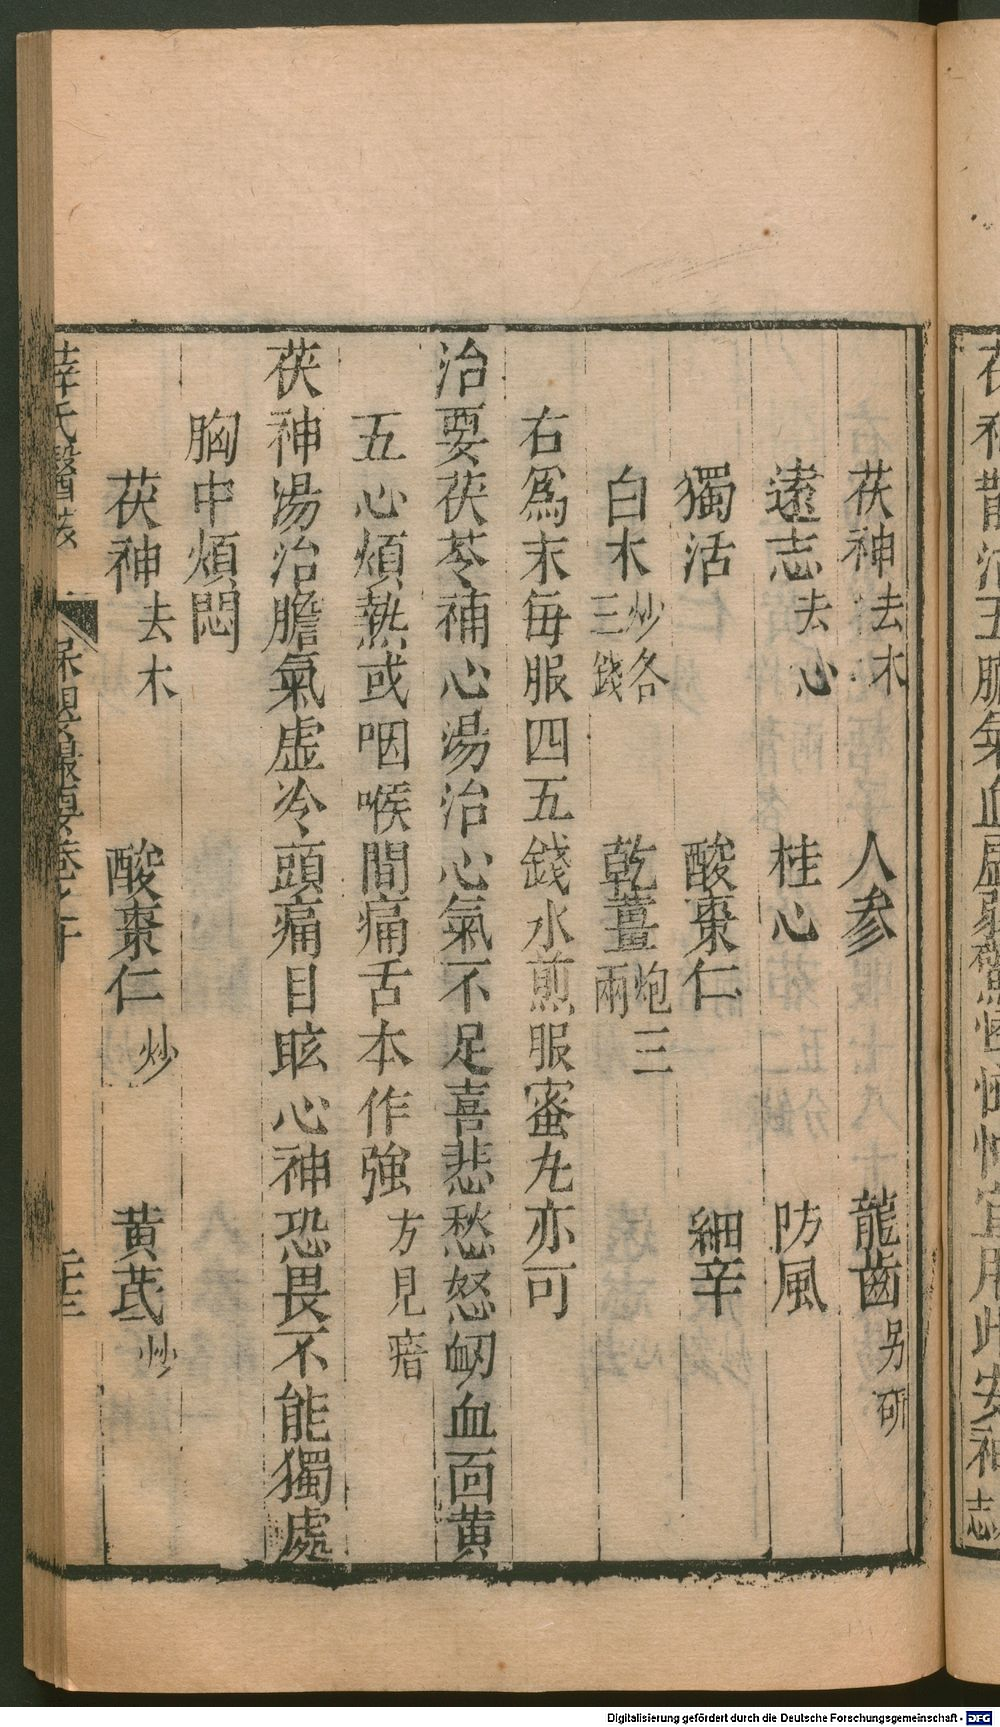 茯神去木 人參 龍齒另研
遠志去心 桂心 防風
獨活 酸棗仁 細辛
白木炒各三錢 乾薑炮三兩
右爲末每服四五錢水煎服蜜丸亦可
治要茯苓補心湯治心氣不足喜悲愁怒衂血面黃
五心煩熱或咽喉間痛舌本作強方見瘖
茯神湯治膽氣虛冷頭痛目眩心神恐畏不能獨處
胸中煩悶
茯神去木 酸棗仁炒 黃芪炒
薛氏醫 保嬰撮要卷之十
Digitalisierung gefördert durch die Deutsche Forschungsgemeinschaft - DFG